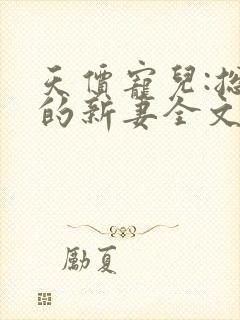 天價寵兒:
的新妻全文
勵夏